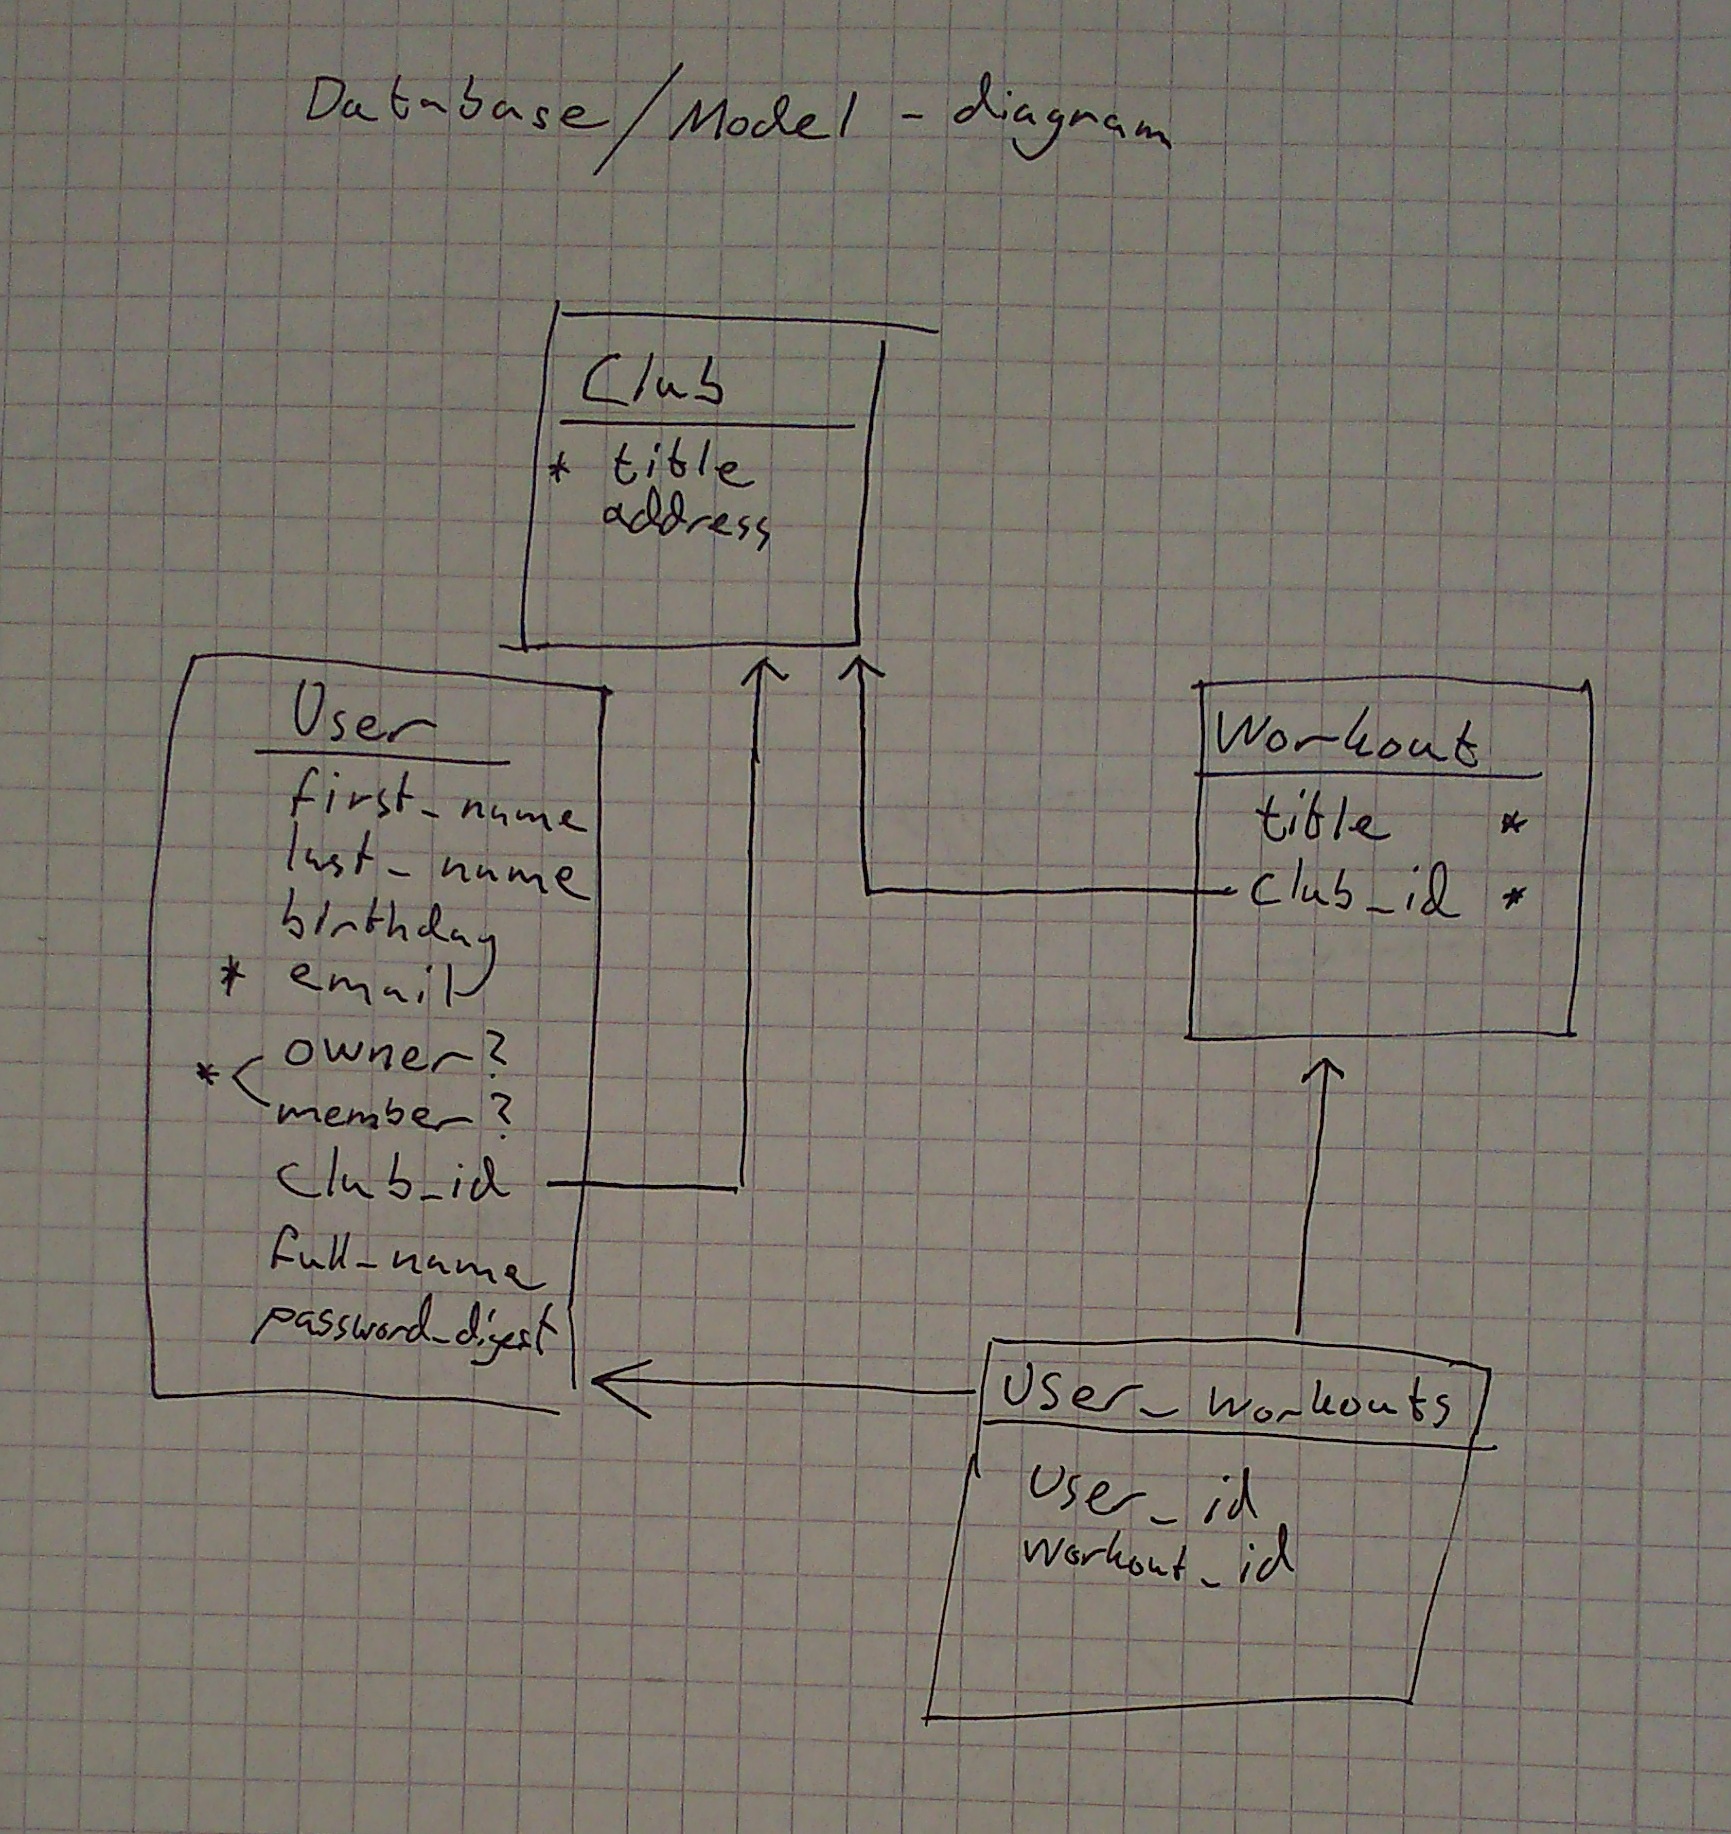 Database/Model - diagram
Club
* title
address
User
first_name
last_name
birthday
* email
* < owner?
member?
club_id
full_name
password_digest
Workout
title *
club_id *
User_workouts
User_id
workout_id